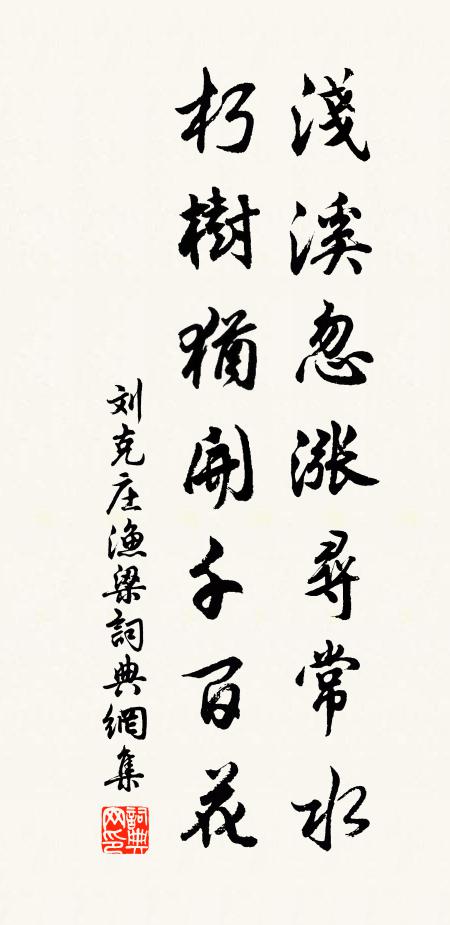 淺溪忽漲尋常水
朽樹猶開千百花
刘克庄漁梁詞典網集
詞典网印